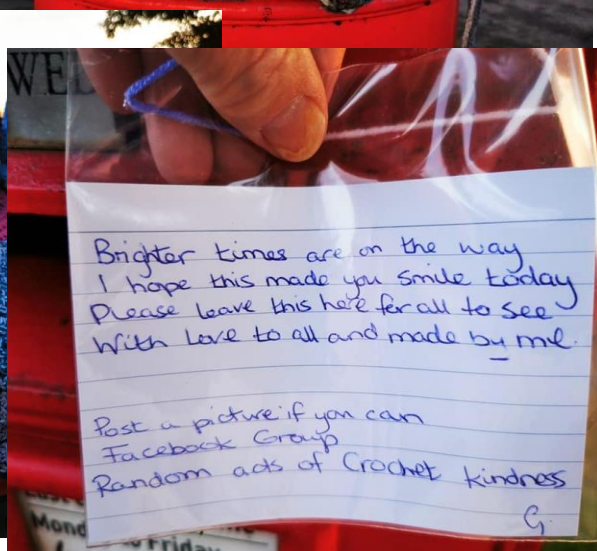 WEL
Brighter times are on the way
I hope this made you smile today
Please leave this here for all to see
With Love to all and made by me.
Post a picture if you can
Facebook Group
Random acts of Crochet kindness
G.
Mond
Friday